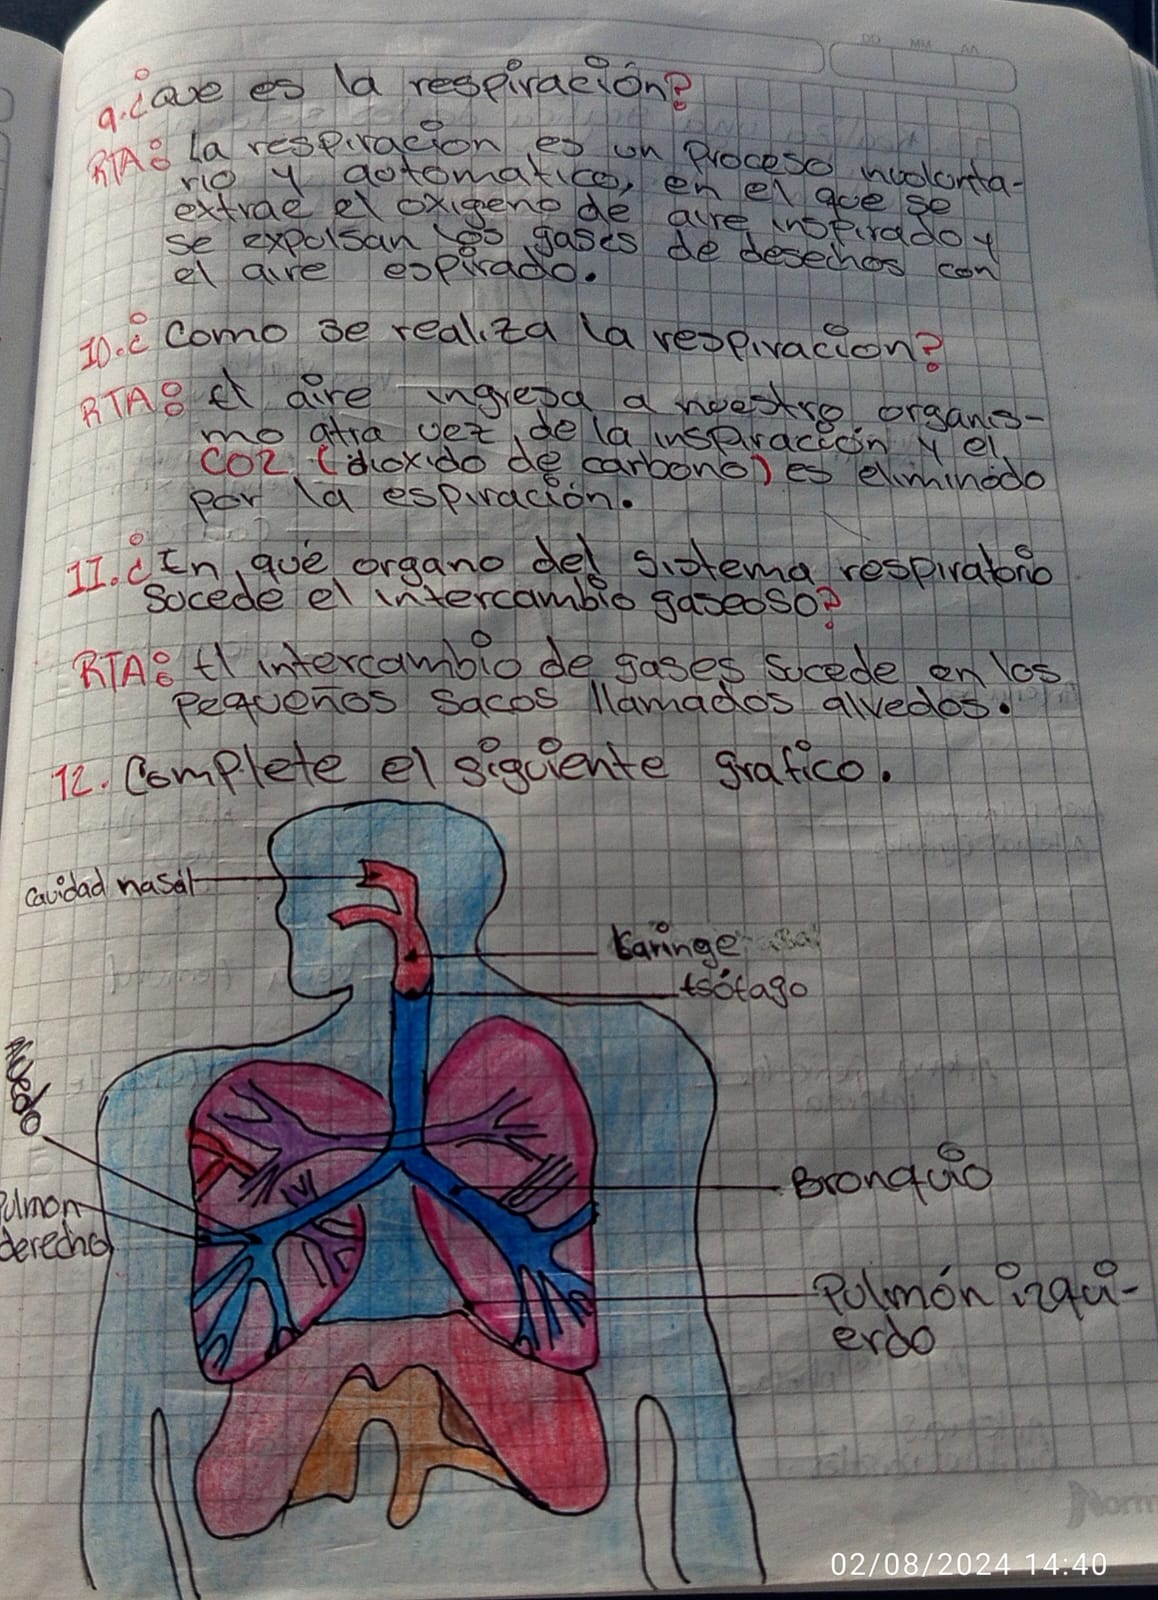 DD MM AA
9. ¿Que es la respiración?
RTA: La respiracion es un proceso involonta-
rio y automatico, en el que se
extrae el oxigeno de aire inspirado y
se expulsan los gases de desechos con
el aire espirado.
10. ¿Como se realiza la respiracion?
RTA: El aire ingresa a nuestro organis-
mo atra vez de la inspiracción y el
CO2 (dioxido de carbono) es eliminado
por la espiración.
11. ¿En qué organo del sistema respiratorio
Sucede el intercambio gaseoso?
RTA: El intercambio de gases sucede en los
pequeños sacos llamados alveolos.
12. Complete el siguiente grafico.
Cavidad nasal
Laringe
Esófago
Alveolo
Pulmon
derecho
Bronquio
Pulmón izqui-
erdo
Norm
02/08/2024 14:40